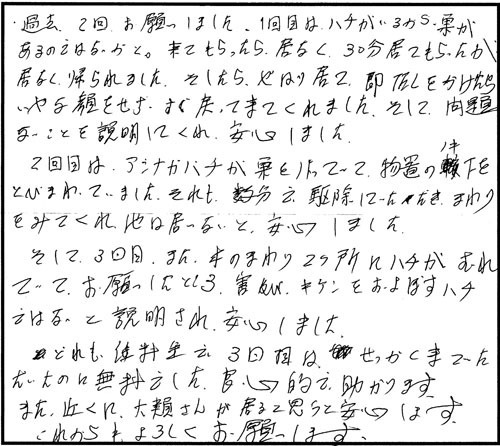 過去、2回、お願いしました。1回目は、ハチがいるから、巣が
あるのではないかと。来てもらったら、居なく、30分居てもらったが
居なく、帰られました。そしたら、やはり居て、即TELをかけたら
いやな顔をせず、すぐ戻って来てくれました。そして、問題
ないことを説明してくれ、安心しました。
2回目は、アシナガバチが巣を作っていて、物置のノキ下を
とびまわっていました。それも、数分で、駆除していただき、まわり
をみてくれ、他は居ないと、安心しました。
そして、3回目、また、木のまわり2ヶ所にハチがむれ
ていて、お願いしたところ、害ない、キケンをおよぼすハチ
ではないと説明され、安心しました。
どれも、低料金で、3回目は、せっかくきていた
だいたのに無料でした。良心的で、助かります。
また、近くに、大類さんが居ると思うと安心します。
これからもよろしくお願いします。